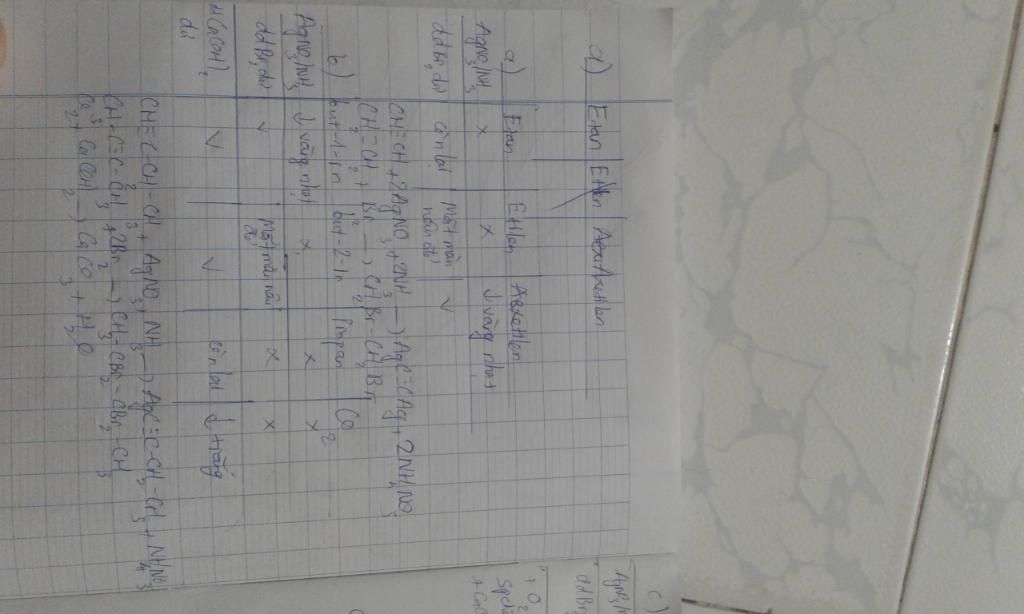 a) Etan Etilen Axetilen
a) Etan Etilen Axetilen
AgNO3/NH3 x x ↓ vàng nhạt
dd Br2 dư còn lại Mất màu nâu đỏ v
CH≡CH + 2AgNO3 + 2NH3 → AgC≡CAg + 2NH4NO3
CH2=CH2 + Br2 → CH2Br-CH2Br
b) but-1-in but-2-in Propan CO2
AgNO3/NH3 ↓ vàng nhạt x x x
dd Br2 dư v Mất màu nâu đỏ x x
Ca(OH)2 dư v v còn lại ↓ trắng
CH≡C-CH2-CH3 + AgNO3 + NH3 → AgC≡C-CH2-CH3 + NH4NO3
CH3-C≡C-CH3 + 2Br2 → CH3-CBr2-CBr2-CH3
CO2 + Ca(OH)2 → CaCO3 + H2O
c)
dd Br2
+ O2